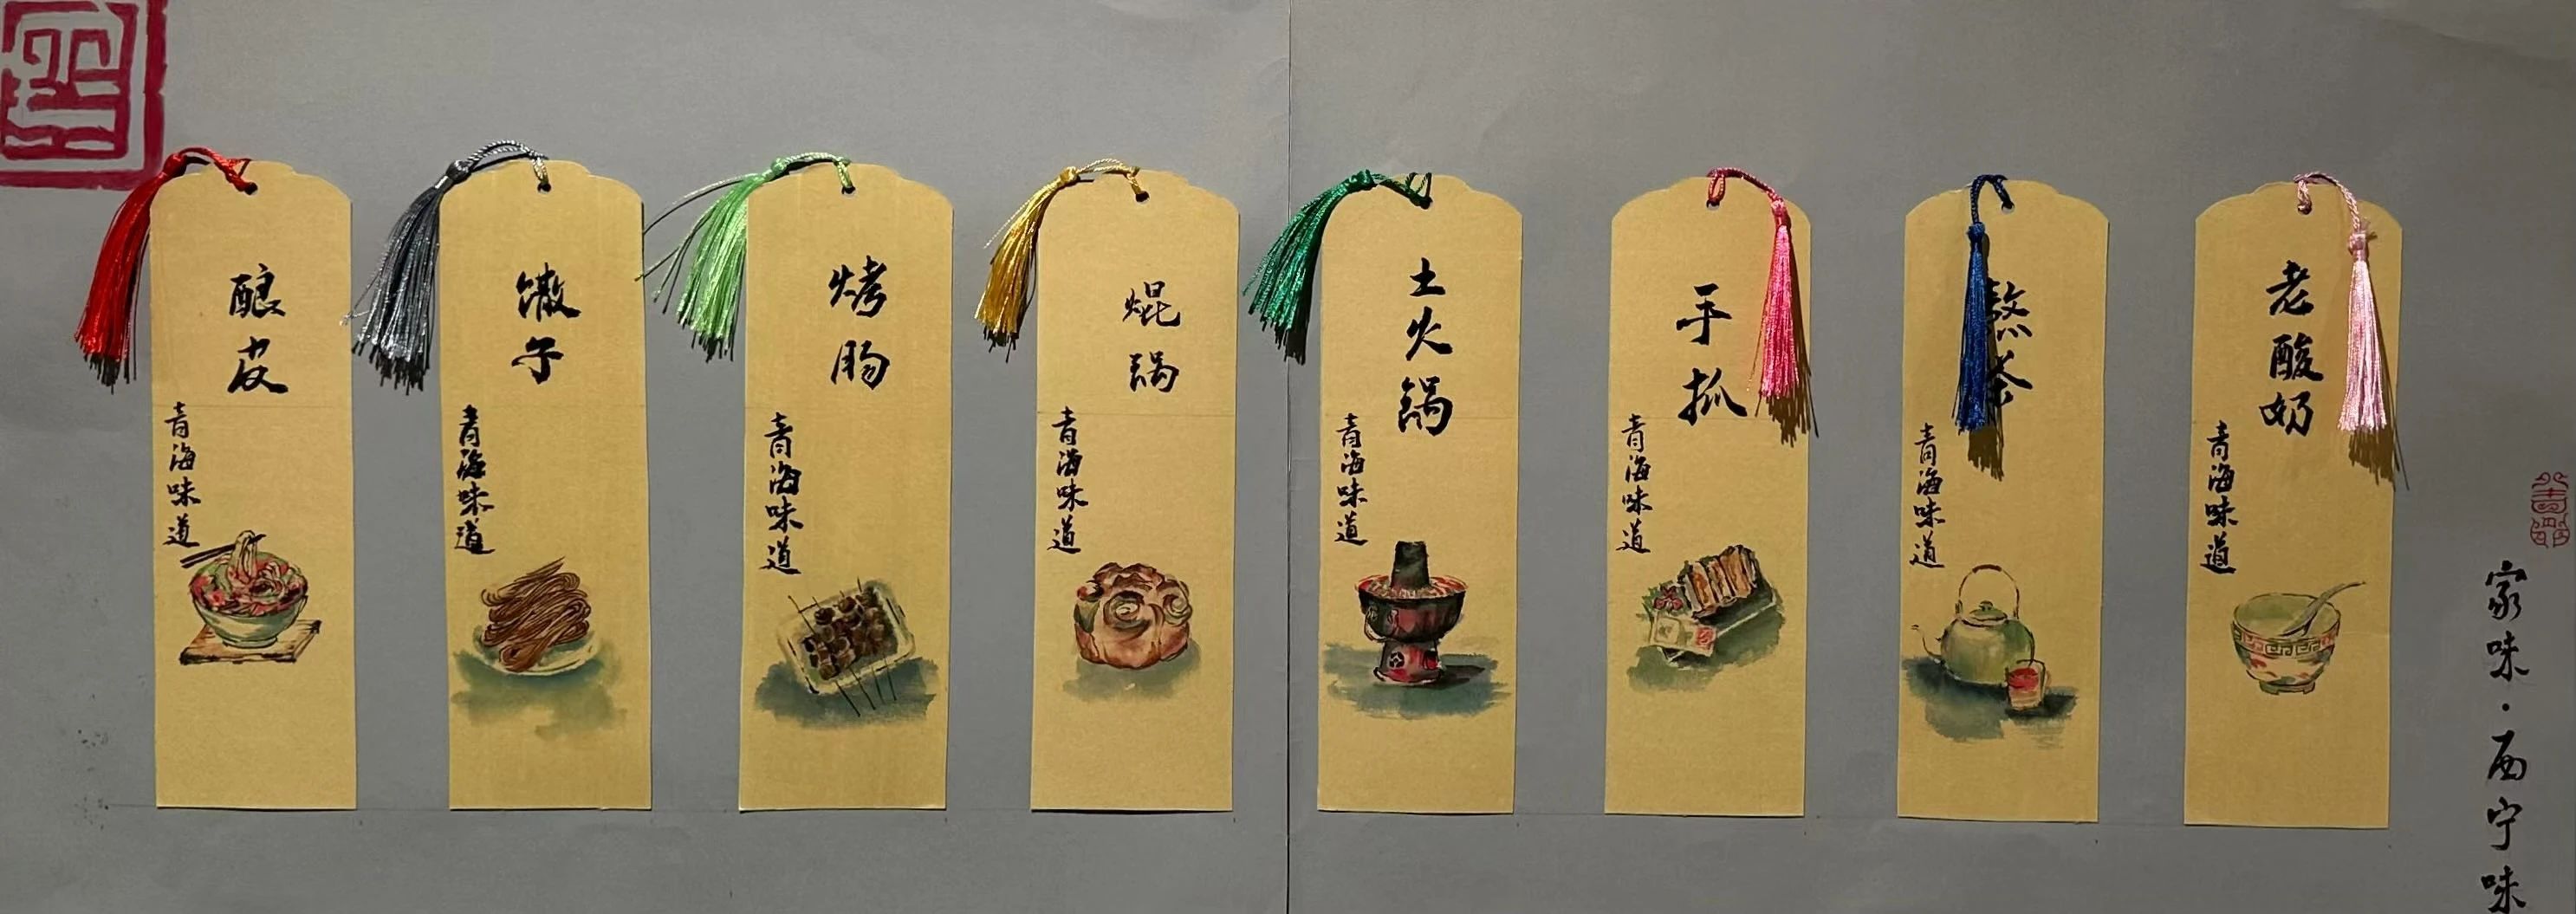 酿皮
青海味道
馓子
青海味道
烤肠
青海味道
焜锅
青海味道
土火锅
青海味道
手抓
青海味道
熬茶
青海味道
老酸奶
青海味道
家味·西宁味